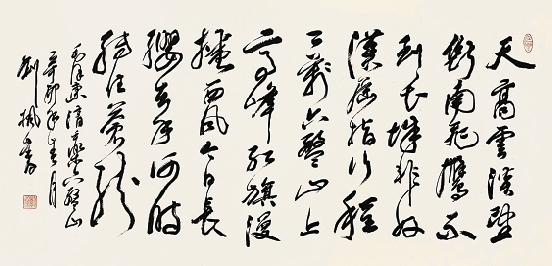 天高雲淡望
断南飛鴈不
到长城非好
漢屈指行程
二萬六盤山上
高峰红旗漫
捲西风今日長
纓在手何时
縛住蒼龙
毛泽东清平樂六盤山
辛卯年春月
劉楓書